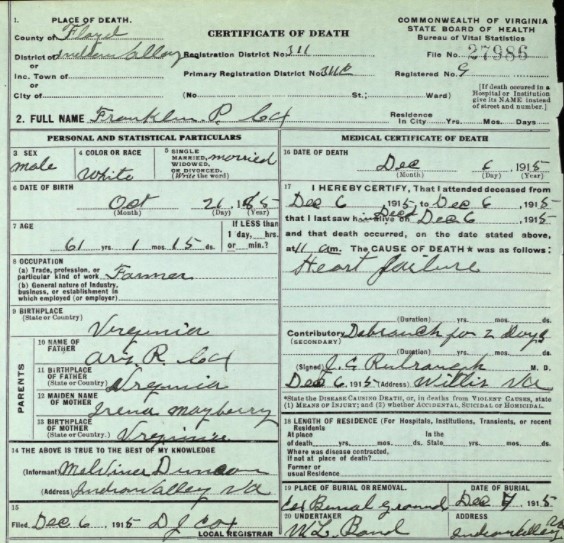 1. PLACE OF DEATH.
County of Floyd
District of Indian Valley
or
Inc. Town of
or
City of
CERTIFICATE OF DEATH
Registration District No. 311
Primary Registration District No.
(No. St.; Ward)
COMMONWEALTH OF VIRGINIA
STATE BOARD OF HEALTH
Bureau of Vital Statistics
File No. 27986
Registered No. 9
[If death occured in a
Hospital or Institution
give its NAME instead
of street and number.]
2. FULL NAME Franklin P. Cox
Residence
In City Yrs. Mos. Days
PERSONAL AND STATISTICAL PARTICULARS
3 SEX
male
4 COLOR OR RACE
White
5 SINGLE
MARRIED,
WIDOWED,
OR DIVORCED.
(Write the word)
married
6 DATE OF BIRTH
Oct 21
(Month) (Day) (Year)
7 AGE
61 yrs. 1 mos. 15 ds.
If LESS than
1 day, hrs.
or min.?
8 OCCUPATION
(a) Trade, profession, or
particular kind of work Farmer
(b) General nature of Industry,
business, or establishment in
which employed (or employer)
9 BIRTHPLACE
(State or Country)
Virginia
PARENTS
10 NAME OF
FATHER
R. Cox
11 BIRTHPLACE
OF FATHER
(State or Country)
Virginia
12 MAIDEN NAME
OF MOTHER
Irena Mayberry
13 BIRTHPLACE
OF MOTHER
(State or Country)
Virginia
14 THE ABOVE IS TRUE TO THE BEST OF MY KNOWLEDGE
(Informant Duncan
(Address) Indian Valley Va
15
Filed Dec 6 1915 D J Cox
LOCAL REGISTRAR
MEDICAL CERTIFICATE OF DEATH
16 DATE OF DEATH
Dec 6, 1915
(Month) (Day) (Year)
17 I HEREBY CERTIFY, That I attended deceased from
Dec 6, 1915, to Dec 6, 1915
that I last saw h alive on Dec 6, 1915
and that death occurred, on the date stated above,
at 11 am. The CAUSE OF DEATH* was as follows:
Heart failure
(Duration) yrs. mos. ds.
Contributory for 2 Days
(SECONDARY)
(Duration) yrs. mos. ds.
(Signed) M. D.
Dec 6, 1915 (Address) Willis Va
*State the DISEASE CAUSING DEATH, or, in deaths from VIOLENT CAUSES, state
(1) MEANS OF INJURY; and (2) whether ACCIDENTAL, SUICIDAL OR HOMICIDAL.
18 LENGTH OF RESIDENCE (For Hospitals, Institutions, Transients, or recent
Residents
At place In the
of death yrs. mos. ds. State yrs. mos. ds.
Where was disease contracted,
if not at place of death?
Former or
usual Residence
19 PLACE OF BURIAL OR REMOVAL.
Cox Burial Ground
DATE OF BURIAL
Dec 7, 1915
20 UNDERTAKER
W L Bond
ADDRESS
Indian Valley Va